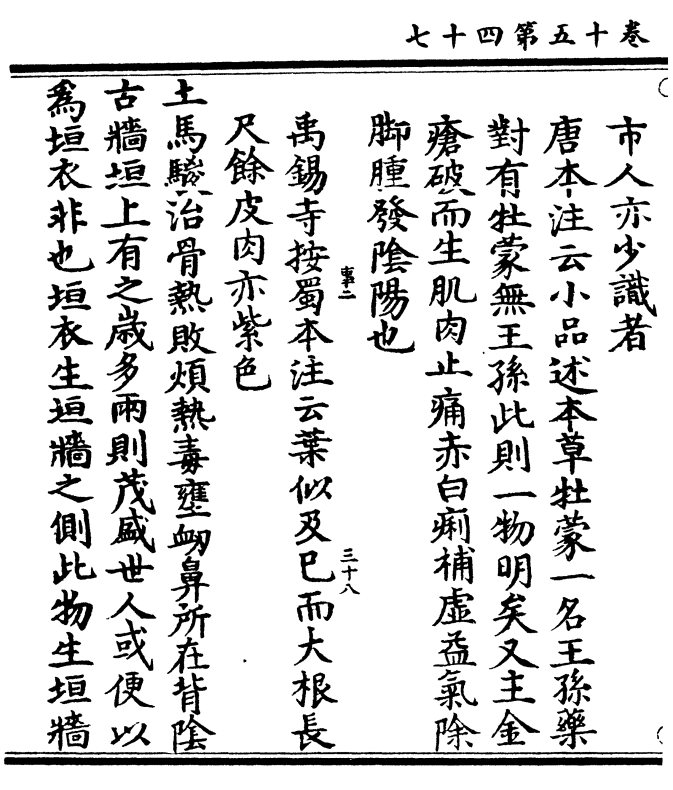 卷十五第四十七
市人亦少識者
唐本注云小品述本草牡蒙一名王孫藥
對有牡蒙無王孫此則一物明矣又主金
瘡破而生肌肉止痛赤白痢補虛益氣除
脚腫發陰陽也
事二
三十八
禹錫寺按蜀本注云葉似及巳而大根長
尺餘皮肉亦紫色
土馬騣治骨熱敗煩熱毒壅衂鼻所在背陰
古牆垣上有之歲多雨則茂盛世人或便以
爲垣衣非也垣衣生垣牆之側此物生垣牆